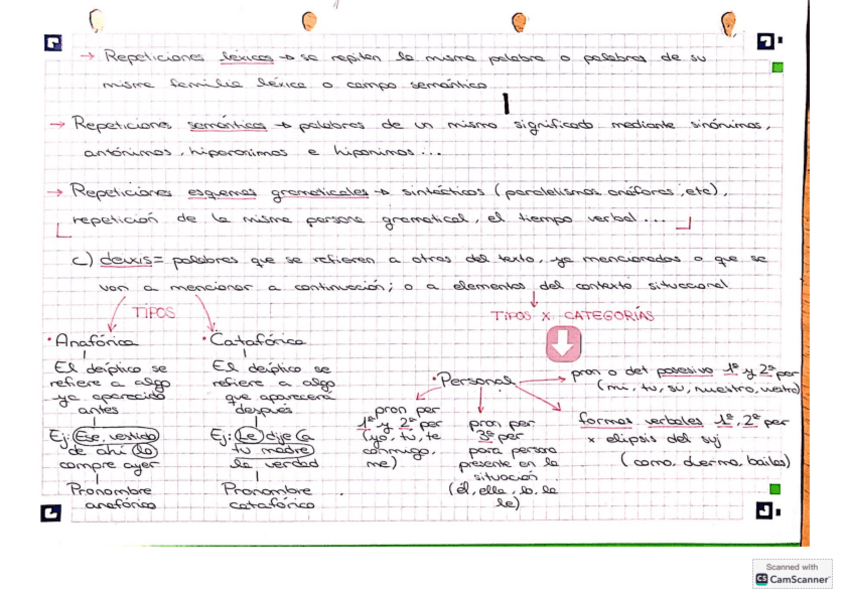 → Repeticiones léxicas → se repiten la misma palabra o palabras de su
misma familia léxica o campo semántico
→ Repeticiones semánticas → palabras de un mismo significado mediante sinónimos,
antónimos, hiperonimos e hiponimos...
→ Repeticiones esquemas gramaticales → sintácticos (paralelismos, anáforas, etc),
repetición de la misma persona gramatical, el tiempo verbal...
c) deixis = palabras que se refieren a otras del texto, ya mencionadas o que se
van a mencionar a continuación; o a elementos del contexto situacional
TIPOS
TIPOS X CATEGORÍAS
· Anafórica
El deíptico se
refiere a algo
ya aparecido
antes
Ej: Ese vestido
de ahí lo
compre ayer
Pronombre
anafórico
· Catafórica
El deíptico se
refiere a algo
que aparecerá
después
Ej: Le dije a
tu madre
la verdad
Pronombre
catafórico
· Personal
pron per
1ª y 2ª per
(yo, tu, te
conmigo,
me)
pron per
3ª per
para persona
presente en la
situación
(él, ella, lo, la
le)
pron o det posesivo 1ª y 2ª per
(mi, tu, su, nuestro, vestro)
formas verbales 1ª, 2ª per
x elipsis del suj
(como, duermo, bailas)
Scanned with
CS CamScanner